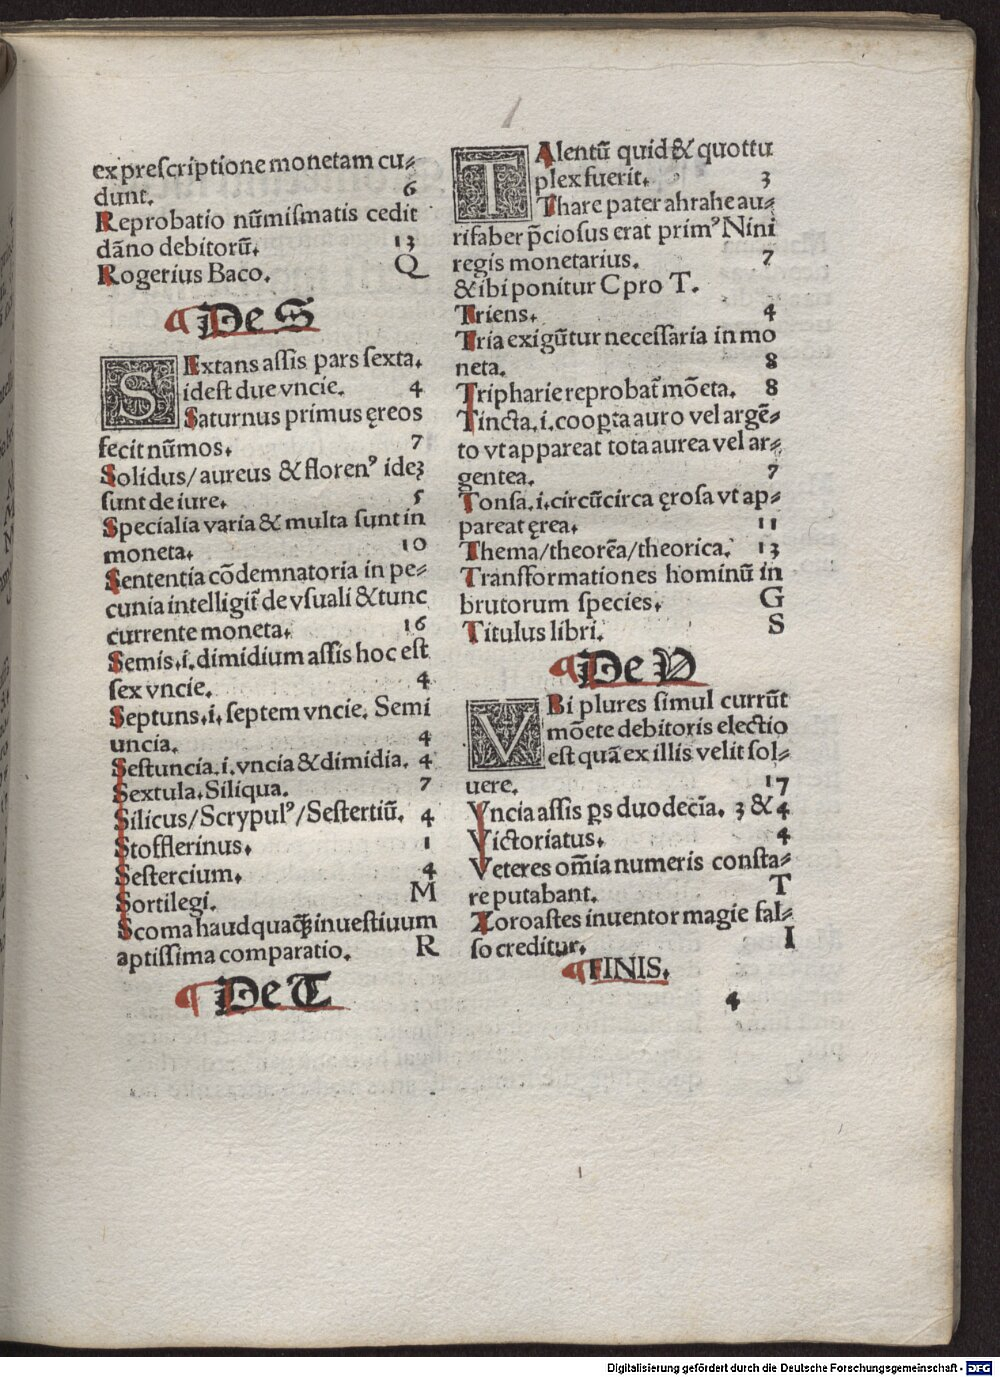 ex preſcriptione monetam cu⸗
dunt. 6
Reprobatio nūmiſmatis cedit
dāno debitorū. 13
Rogerius Baco. Q
¶ De S
SExtans aſſis pars ſexta.
ideſt due vncie. 4
Saturnus primus ęreos
fecit nūmos. 7
Solidus/aureus & florenꝰ ideʒ
ſunt de iure. 5
Specialia varia & multa ſunt in
moneta. 10
Sententia cōdemnatoria in pe⸗
cunia intelligit̄ de vſuali & tunc
currente moneta. 16
Semis.i.dimidium aſſis hoc eſt
ſex vncie. 4
Septuns.i.ſeptem vncie. Semi
uncia. 4
Seſtuncia.i.vncia & dimidia. 4
Sextula.Siliqua. 7
Silicus/Scrypulꝰ/Seſtertiū. 4
Stofflerinus. 1
Seſtercium. 4
Sortilegi. M
Scoma haud quaꝗ̃ inueſtiuum
aptiſſima comparatio. R
¶ De T
TAlentū quid & quottu
plex fuerit. 3
Thare pater ahrahe au⸗
rifaber p̄cioſus erat primꝰ Nini
regis monetarius. 7
& ibi ponitur C pro T.
Triens. 4
Tria exigūtur neceſſaria in mo
neta. 8
Tripharie reprobat̄ mōeta. 8
Tincta.i.cooꝑta auro vel argē⸗
to vt appareat tota aurea vel ar⸗
gentea. 7
Tonſa.i.circūcirca ęroſa vt ap⸗
pareat ęrea. 11
Thema/theorēa/theorica. 13
Tranſformationes hominū in
brutorum ſpecies. G
Titulus libri. S
¶ De V
VBi plures ſimul currūt
mōete debitoris electio
eſt quā ex illis velit ſol⸗
uere. 17
Vncia aſſis ꝑs duodecīa. 3 & 4
Victoriatus. 4
Veteres om̄ia numeris conſta⸗
re putabant. T
Zoroaſtes inuentor magie fal⸗
ſo creditur. I
¶ FINIS.
4
Digitalisierung gefördert durch die Deutsche Forschungsgemeinschaft - DFG